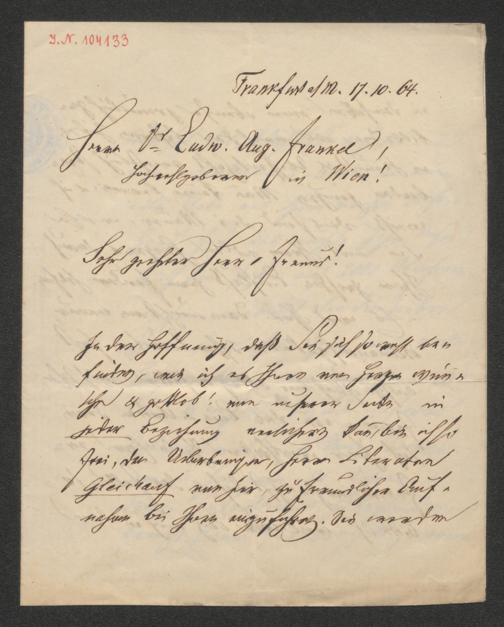 I.N. 104133
Frankfurt a/M. 17.10.64.
Herrn Dr Ludw. Aug. Frankel,
Hochwohlgeboren in Wien!
Sehr geehrter Herr u. Freund!
In der Hoffnung, daß Sie sich so wohl be
finden, wie ich es Ihnen von Herzen wün=
sche & gottlob! von unserer Seite in
jeder Beziehung versichern kann, bin ich so
frei, den Ueberbringer, Herrn Literaten
Gleichauf von hier, zu freundlicher Auf=
nahme bei Ihnen einzuführen. Sie werden